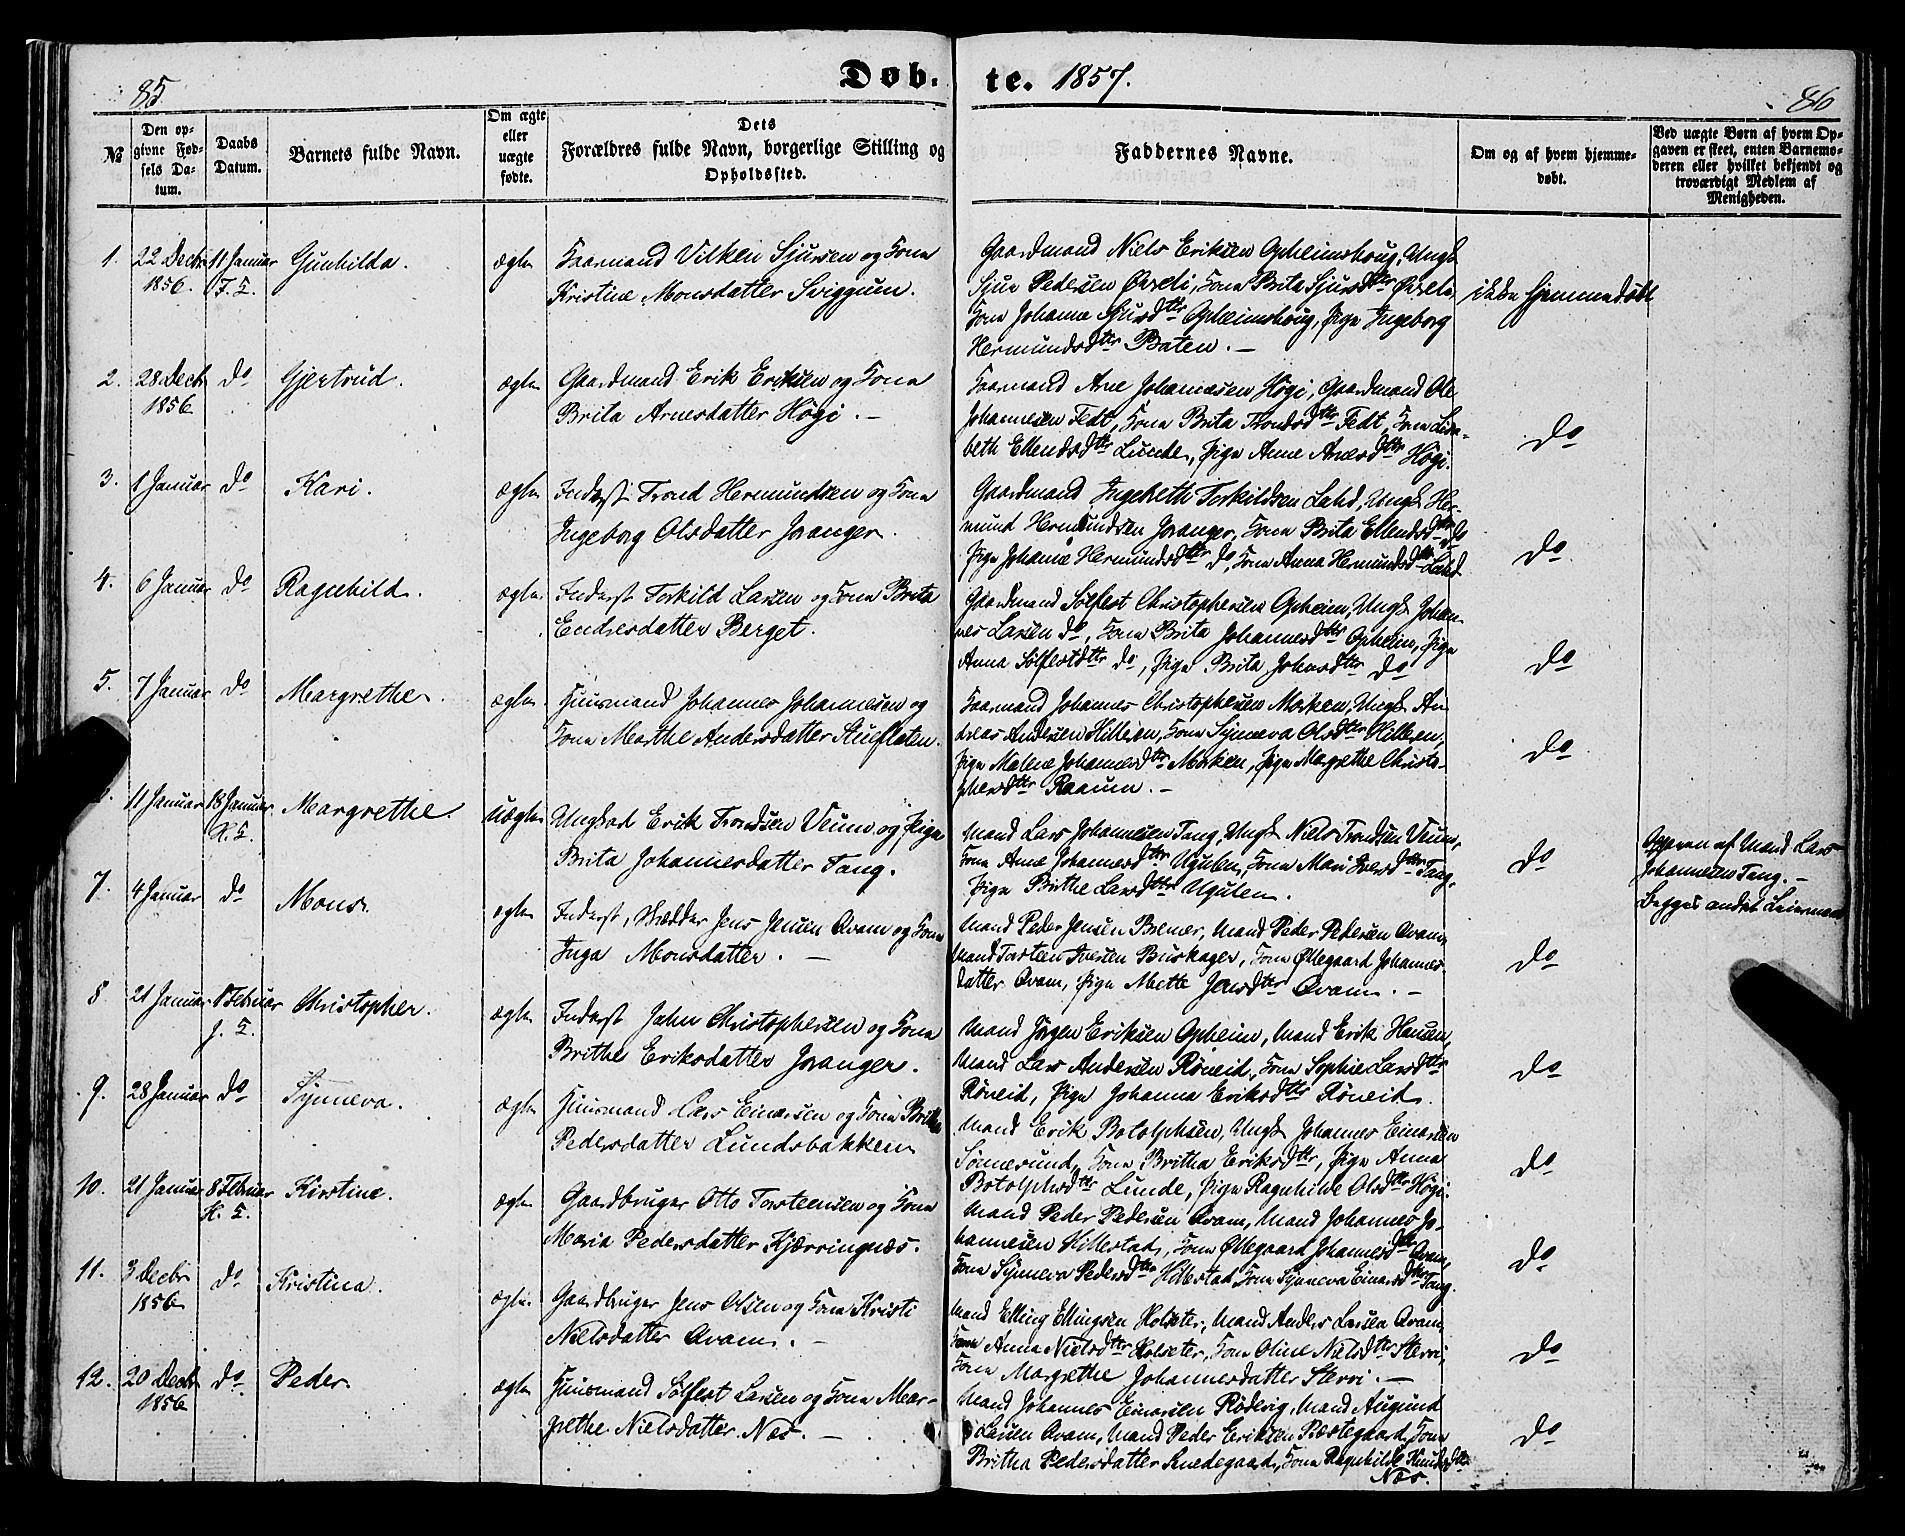 85
Døb-
te. 1857.
86
№
Den op-
givne Fød-
sels Da-
tum.
Daabs
Datum.
Barnets fulde Navn.
Om ægte
eller
uægte
fødte.
Dets
Forældres fulde Navn, borgerlige Stilling og
Opholdssted.
Faddernes Navne.
Om og af hvem hjemme-
døbt.
Ved uægte Børn af hvem Op-
gaven er skeet, enten Barnemo-
deren eller hvilket bekjendt og
troværdigt Medlem af
Menigheden.
1. 22 Decbr 11 Januar Gunhilda. ægte Vilken Sjursen og Kona
1856.
Kristine Monsdatter Sviggum.
Gaardmand Niels Eriksen Opheimshoug, Ungk
Sjur Pedersen Øvreli, Kona Brita Sjursdtr Øvreli
Kona Johanna Sjursdtr Opheimshoug, Pige Ingeborg
Hermundsdtr Baten. —
ikke hjemmedøbt
2. 28 Decbr do Gjertrud. ægte Gaardmand Erik Eriksen og Kona
1856
Brita Arnesdatter Høgi. —
Arne Johannesen Høgi, Gaardmand Ole
Johannesen Fedt, Kona Brita Trondsdtr Fedt, Kona Lisa-
beth Ellendsdtr Lunde, Pige Anne Arnesdtr Høgi.
do
3. 1 Januar do Kari. ægte Inderst Trond Hermundsen og Kona
Ingeborg Olsdatter Joranger.
Gaardmand Torkildsen Lahd, Ungk Her-
mund Hermundsen Joranger, Kona Brita Ellendsdtr do
Pige Johanne Hermundsdtr do, Kona Anna Hermundsdtr Lahd
do
4. 6 Januar do Ragnhild. ægte Inderst Torkild Larsen og Kona Brita
Endresdatter Berget.
Gaardmand Sølfest Christophersen Opheim, Ungk Johan-
nes Larsen do, Kona Brita Johannesdtr Opheim, Pige
Anna Sølfestdtr do, Pige Brita Johnsdtr do
do
5. 7 Januar do Margrethe. ægte Huusmand Johannes Johannesen og
Kona Marthe Andersdatter Stueflaten.
Johannes Christophersen Morken, Ungk An-
dreas Andersen Hillesen, Kona Synneva Olsdtr Hillesen,
Pige Malene Johannesdtr Morken, Pige Margrethe Christo-
phersdtr Raaum. —
do
11 Januar 18 Januar Margrethe. uægte Ungkarl Erik Trondsen Veum og Pige
Brita Johannesdatter Tang.
Mand Lars Johannesen Tang, Ungk Niels Trondsen Veum,
Kona Anne Johannesdtr Ugulen, Kona Mari Iversdtr Tang,
Pige Brithe Larsdtr Ugulen.
do
Opgaven af Mand Lars
Johannesen Tang. —
Begges andet Leiermaal
7. 4 Januar do Mons. ægte Inderst, Skrædder Jens Jensen Qvam og Kona
Inga Monsdatter. —
Mand Peder Jensen Bremer, Mand Peder Pedersen Qvam,
Mand Torsten Iversen Buskager, Kona Øllegaard Johannes-
datter Qvam, Pige Mette Jensdtr Qvam. —
do
8 21 Januar 1 Februar Christopher. ægte Inderst John Christophersen og Kona
Brithe Eriksdatter Joranger.
Mand Jørgen Eriksen Opheim, Mand Erik Hansen,
Mand Lars Andersen Røneid, Kona Sophie Larsdtr
Røneid, Pige Johanna Eriksdtr Røneid.
do
9. 28 Januar do Synneva. ægte Huusmand Lars Einarsen og Kona Brithe
Pedersdatter Lundsbakken
Mand Erik Botolphsen, Ungk Johannes Einarsen
Sønnesund, Kona Britha Eriksdtr, Pige Anna
Botolphsdtr Lunde, Pige Ragnhilde Olsdtr Høgi.
do
10. 21 Januar 8 Februar Kirstine. ægte Gaardbruger Otto Torsteensen og Kona
Maria Pedersdatter Kjærringnæs.
Mand Peder Pedersen Qvam, Mand Johannes Jo-
hannesen Hillestad, Kona Øllegaard Johannesdtr Qvam,
Kona Synneva Pedersdtr Hillestad, Kona Synneva Einarsdtr Tang.
do
11. 3 Decbr do Kristina. ægte. Gaardbruger Jens Olsen og Kona Kristi
1856
Nielsdatter Qvam. —
Mand Elling Ellingsen Kolseter, Mand Anders Larsen Qvam,
Kona Anna Nielsdtr Kolseter, Kona Oline Nielsdtr Sterri,
Kona Margrethe Johannesdatter Sterri. —
do
12. 20 Decbr do Peder. ægte Huusmand Sølfest Larsen og Kona Mar-
1856
grethe Nielsdatter Næs. —
Mand Johannes Einarsen Rødevig, Mand Augund
Larsen Qvam, Mand Peder Eriksen Præstegaard, Kona
Britha Pedersdatter Snedegaard, Kona Ragnhilde Knudsdtr
Næs.
do